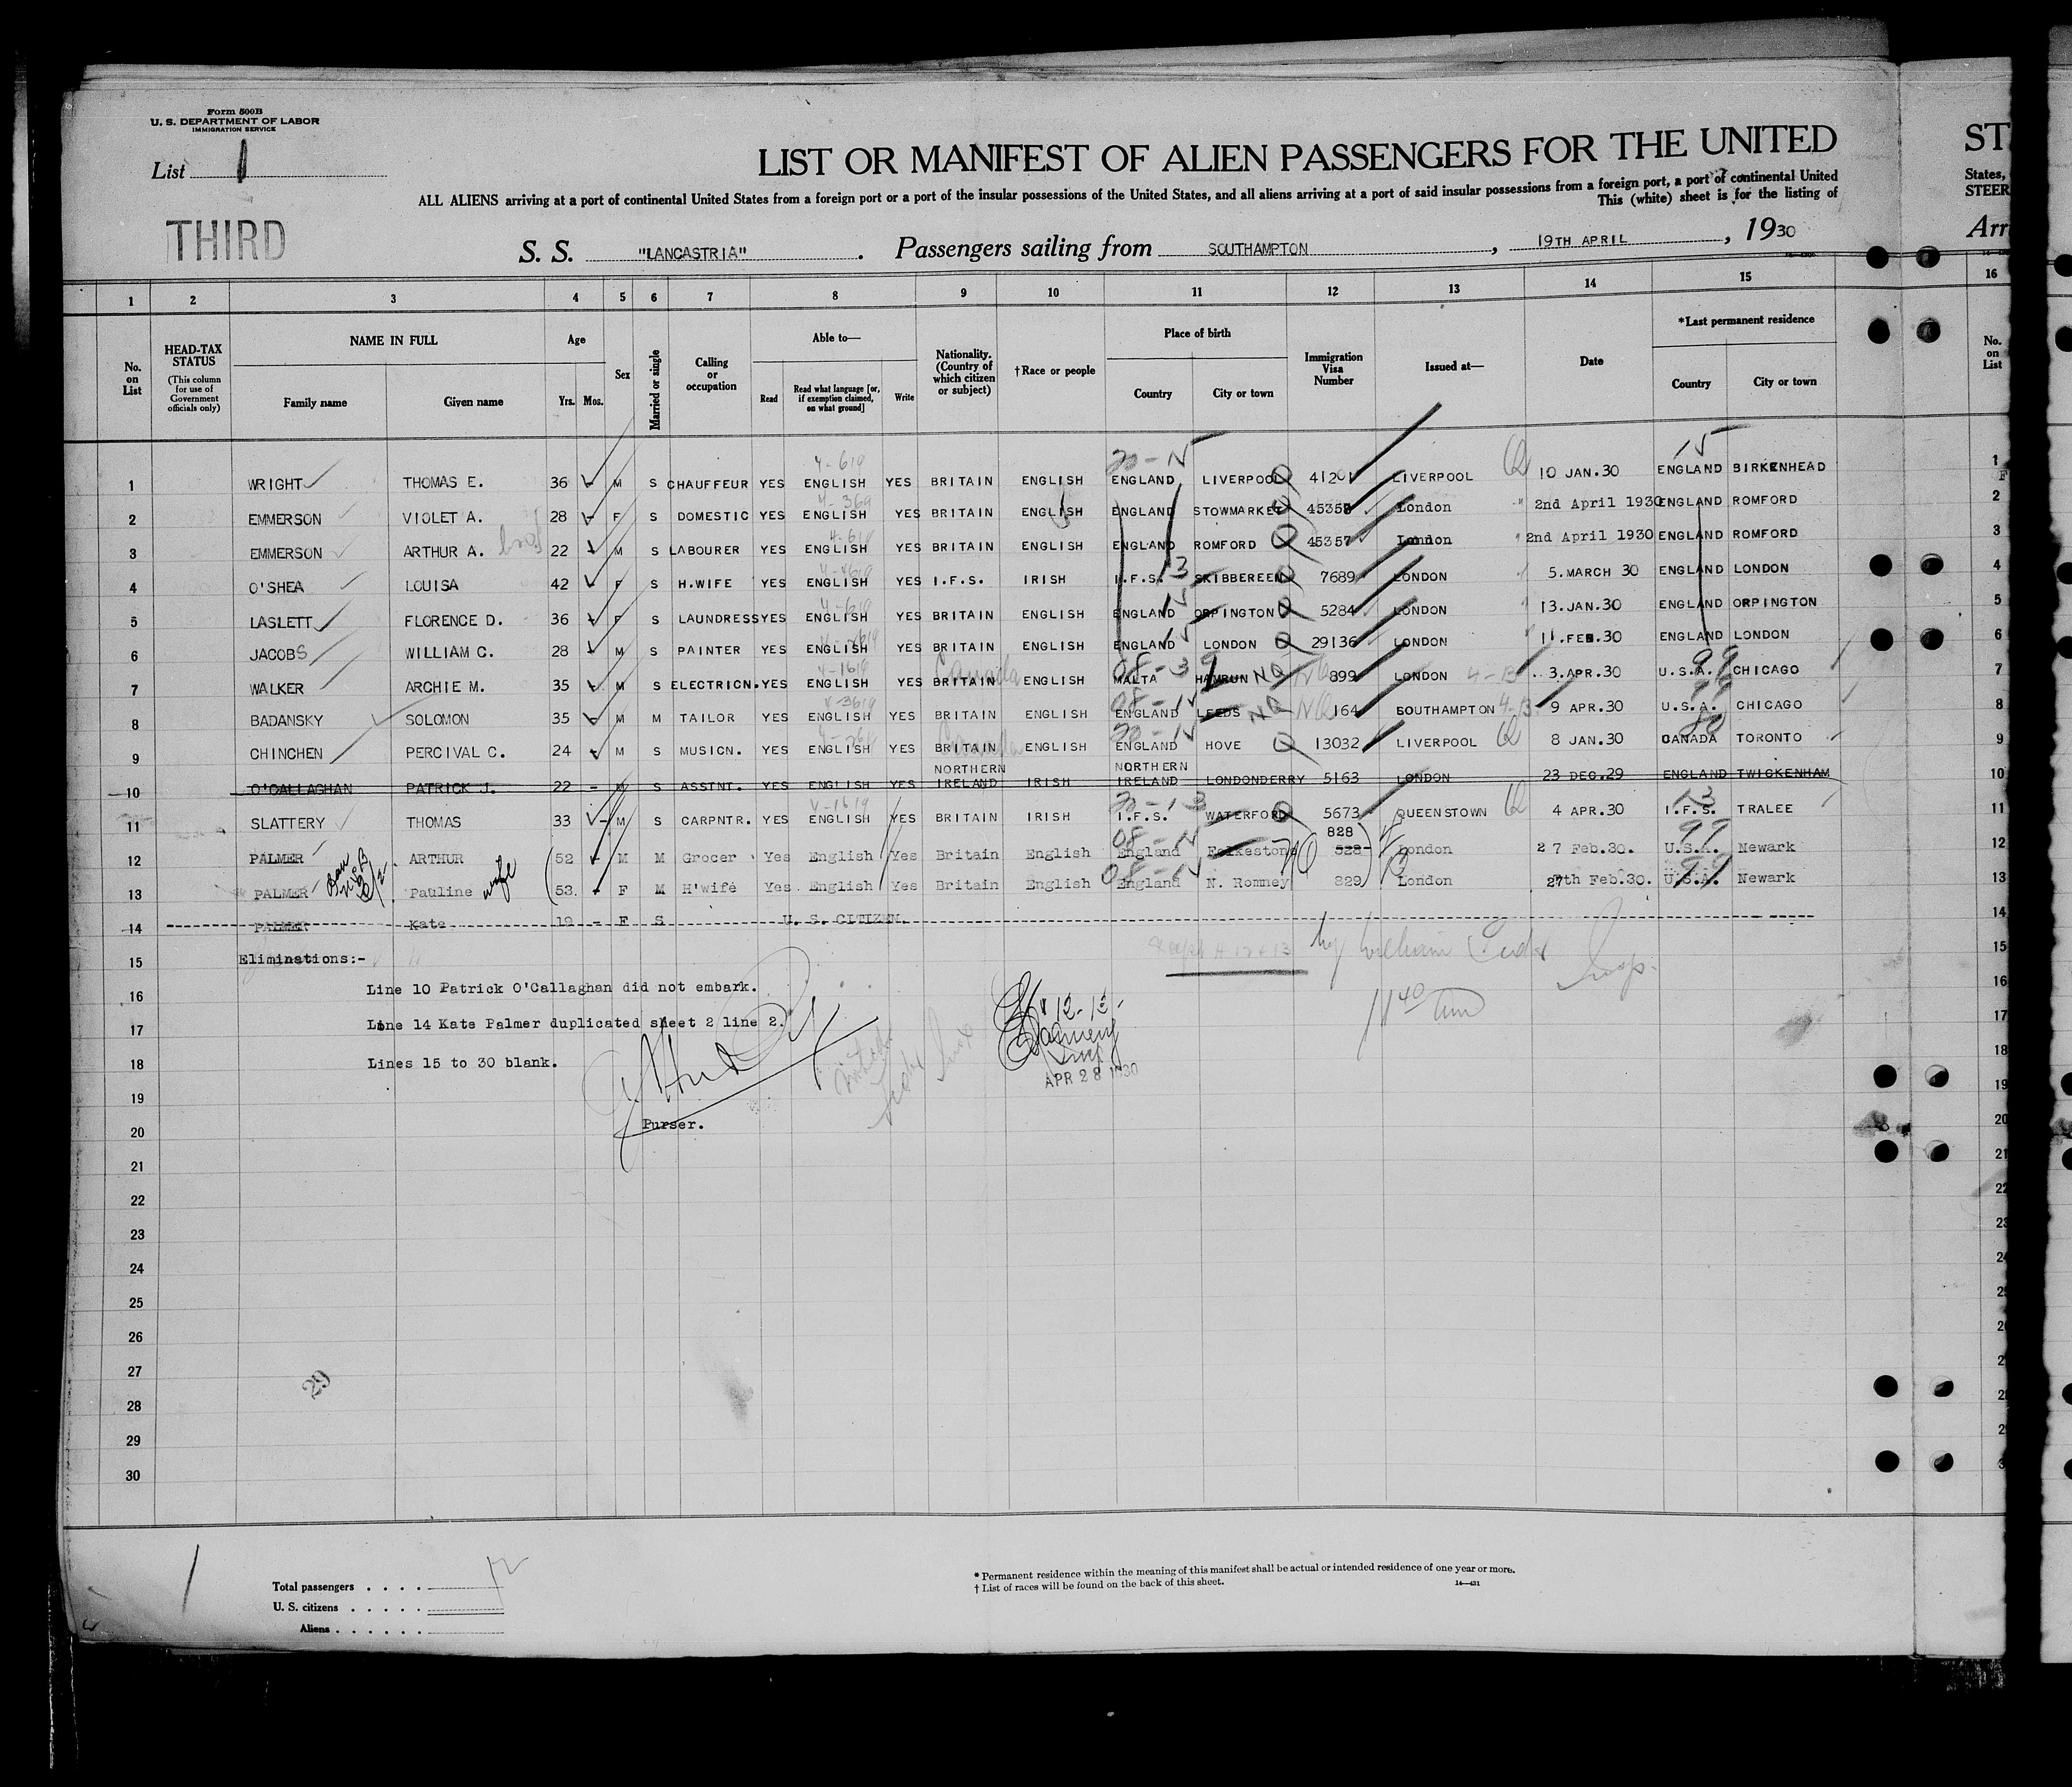 Form 500B
U. S. DEPARTMENT OF LABOR
IMMIGRATION SERVICE
List 1
LIST OR MANIFEST OF ALIEN PASSENGERS FOR THE UNITED
ST
ALL ALIENS arriving at a port of continental United States from a foreign port or a port of the insular possessions of the United States, and all aliens arriving at a port of said insular possessions from a foreign port, a port of continental United
States,
This (white) sheet is for the listing of
STEER
THIRD
S. S. "LANCASTRIA". Passengers sailing from SOUTHAMPTON, 19TH APRIL, 1930
Arr
1 2 3 4 5 6 7 8 9 10 11 12 13 14 15 16
No. on List
HEAD-TAX STATUS (This column for use of Government officials only)
NAME IN FULL Family name Given name
Age Yrs. Mos.
Sex
Married or single
Calling or occupation
Able to— Read Read what language [or, if exemption claimed, on what ground] Write
Nationality. (Country of which citizen or subject)
†Race or people
Place of birth Country City or town
Immigration Visa Number
Issued at—
Date
*Last permanent residence Country City or town
No. on List
1 WRIGHT THOMAS E. 36 M S CHAUFFEUR YES ENGLISH YES BRITAIN ENGLISH ENGLAND LIVERPOOL 41201 LIVERPOOL 10 JAN.30 ENGLAND BIRKENHEAD 1
2 EMMERSON VIOLET A. 28 F S DOMESTIC YES ENGLISH YES BRITAIN ENGLISH ENGLAND STOWMARKET 45358 London 2nd April 1930 ENGLAND ROMFORD 2
3 EMMERSON ARTHUR A. 22 M S LABOURER YES ENGLISH YES BRITAIN ENGLISH ENGLAND ROMFORD 45357 London 2nd April 1930 ENGLAND ROMFORD 3
4 O'SHEA LOUISA 42 F S H.WIFE YES ENGLISH YES I.F.S. IRISH I.F.S. SKIBBEREEN 7689 LONDON 5.MARCH 30 ENGLAND LONDON 4
5 LASLETT FLORENCE D. 36 F S LAUNDRESS YES ENGLISH YES BRITAIN ENGLISH ENGLAND ORPINGTON 5284 LONDON 13.JAN.30 ENGLAND ORPINGTON 5
6 JACOBS WILLIAM C. 28 M S PAINTER YES ENGLISH YES BRITAIN ENGLISH ENGLAND LONDON 29136 LONDON 11.FEB.30 ENGLAND LONDON 6
7 WALKER ARCHIE M. 35 M S ELECTRICN. YES ENGLISH YES BRITAIN Canada ENGLISH MALTA HAMRUN NQ 899 LONDON 3.APR.30 U.S.A. CHICAGO 7
8 BADANSKY SOLOMON 35 M M TAILOR YES ENGLISH YES BRITAIN ENGLISH ENGLAND LEEDS NQ 164 SOUTHAMPTON 9 APR.30 U.S.A. CHICAGO 8
9 CHINCHEN PERCIVAL C. 24 M S MUSICN. YES ENGLISH YES BRITAIN ENGLISH ENGLAND HOVE 13032 LIVERPOOL 8 JAN.30 CANADA TORONTO 9
10 O'CALLAGHAN PATRICK J. 22 - M S ASSTNT. YES ENGLISH YES NORTHERN IRELAND IRISH NORTHERN IRELAND LONDONDERRY 5163 LONDON 23 DEC.29 ENGLAND TWICKENHAM 10
11 SLATTERY THOMAS 33 - M S CARPNTR. YES ENGLISH YES BRITAIN IRISH I.F.S. WATERFORD 5673 QUEENSTOWN 4 APR.30 I.F.S. TRALEE 11
828
12 PALMER ARTHUR 52 M M Grocer Yes English Yes Britain English England Folkestone 528 London 27 Feb.30. U.S.A. Newark 12
13 PALMER Pauline wife 53. F M H'wife Yes English Yes Britain English England N. Romney 829 London 27th Feb.30. U.S.A. Newark 13
14 PALMER Kate 19 - F S U. S. CITIZEN. 14
15 Eliminations:- 15
16 Line 10 Patrick O'Callaghan did not embark. 16
17 Line 14 Kate Palmer duplicated sheet 2 line 2. 17
18 Lines 15 to 30 blank. 18
APR 28 1930
19 19
20 Purser. 20
21 21
22 22
23
24
25
26
27
28
29
30
29
Total passengers . . . . 12
U. S. citizens . . . . .
Aliens . . . . . .
* Permanent residence within the meaning of this manifest shall be actual or intended residence of one year or more.
† List of races will be found on the back of this sheet.
14—431